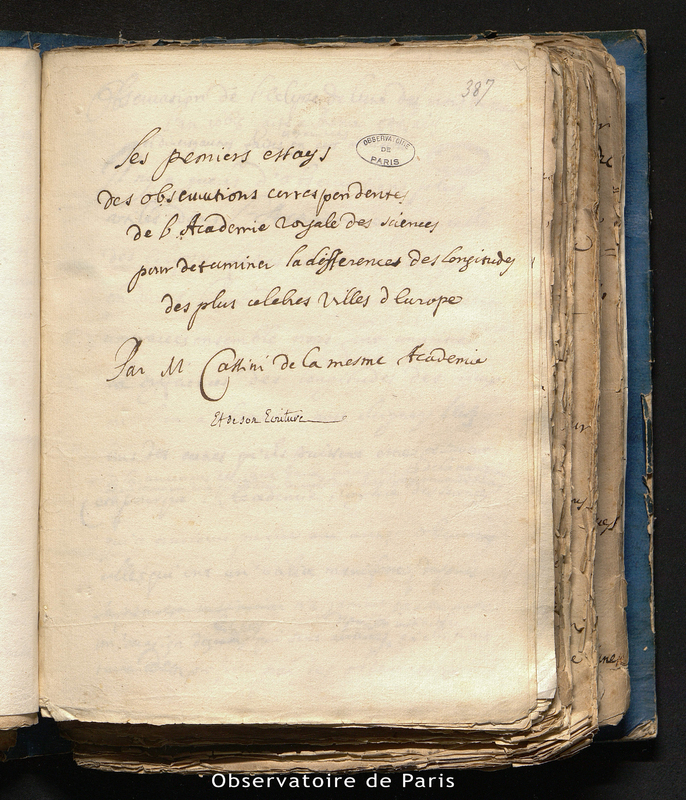 387
les pemiers essays
OBSERVATOIRE
DE
PARIS
des obseruations correspondentes
de l'Academie royale des sciences
pour determiner la differences des longitudes
des plus celebres villes d'Europe
Par M Cassini de la mesme Academie
Et de son Ecriture
Observatoire de Paris